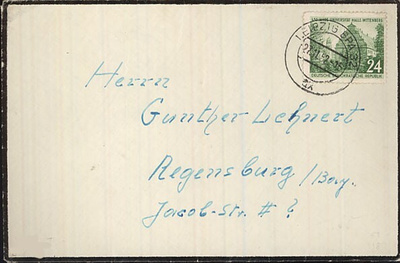 450 JAHRE UNIVERSITÄT HALLE-WITTENBERG
24
DEUTSCHE DEMOKRATISCHE REPUBLIK
LEIPZIG BPA
Herrn
Gunther Lehnert
Regensburg/Bay.
Jacob-Str. # ?